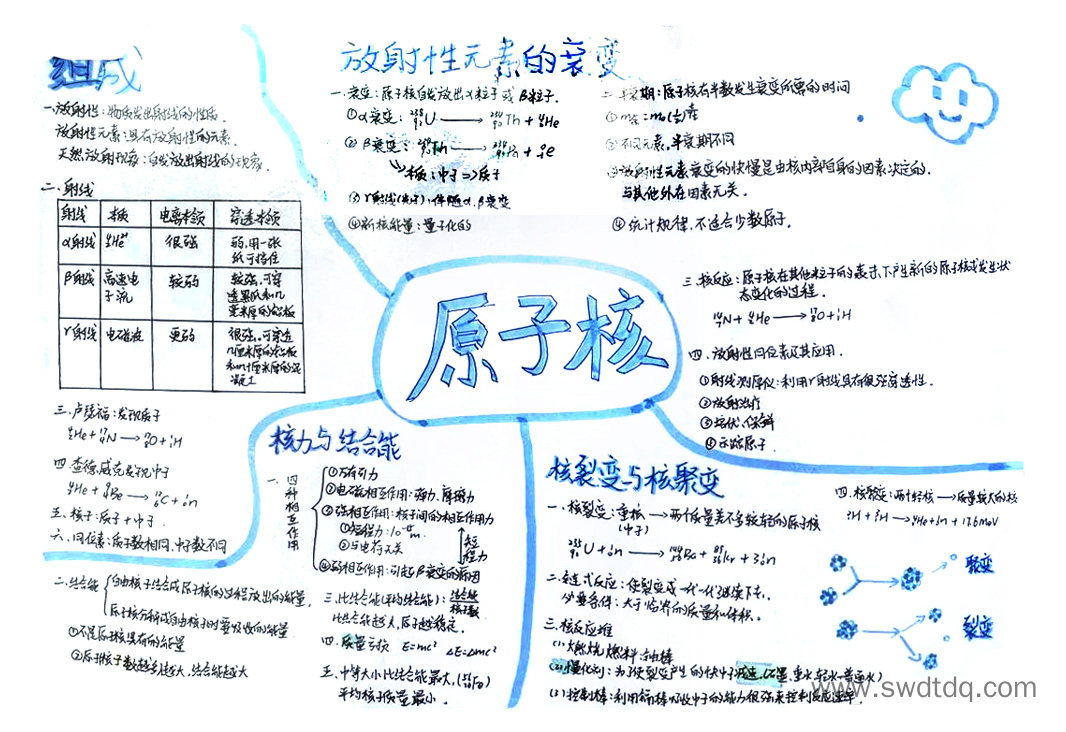 组成
一.放射性:物质发出射线的性质.
放射性元素:具有放射性的元素.
天然放射现象:自发放出射线的现象.
二.射线
射线 本质 电离本领 穿透本领
α射线 ⁴₂He²⁺ 很强 弱,用一张
纸可挡住
β射线 高速电
子流 较弱 较强,可穿
透黑纸和几
毫米厚的铝板
γ射线 电磁波 更弱 很强,可穿透
几厘米厚的铅板
和几十厘米厚的混
凝土
三.卢瑟福:发现质子
⁴₂He + ¹⁴₇N → ¹⁷₈O + ¹₁H
四.查德威克发现中子
⁴₂He + ⁹₄Be → ¹²₆C + ¹₀n
五.核子:质子+中子.
六.同位素:质子数相同,中子数不同
放射性元素的衰变
一.衰变:原子核自发放出α粒子或β粒子.
①α衰变: ²³⁸₉₂U → ²³⁴₉₀Th + ⁴₂He
②β衰变: ²³⁴₉₀Th → ²³⁴₉₁Pa + ⁰₋₁e
本质:中子⇒质子
③γ射线(光子):伴随α,β衰变
④新核能量:量子化的
二.半衰期:原子核有半数发生衰变所需的时间
②不同元素,半衰期不同
③放射性元素衰变的快慢是由核内部自身的因素决定的.
与其他外在因素无关.
④统计规律,不适合少数原子.
三.核反应:原子核在其他粒子的轰击下产生新的原子核或发生状
态变化的过程.
¹⁴₇N + ⁴₂He → ¹⁷₈O + ¹₁H
四.放射性同位素及其应用.
①射线测厚仪:利用γ射线具有很强穿透性.
②放射治疗
③培优,保鲜
④示踪原子.
原子核
核力与结合能
一.四种相互作用
①万有引力
②电磁相互作用:弹力,摩擦力
③强相互作用:核子间的相互作用力
①短程力:10⁻¹⁵m.
②与电荷无关
短程力
④弱相互作用:引起β衰变的原因
二.结合能
自由核子结合成原子核的过程放出的能量.
原子核分解成自由核子时要吸收的能量
①不是原子核具有的能量
②原子核子数越多越大,结合能越大
三.比结合能(平均结合能):结合能/核子数
比结合能越大,原子越稳定.
四.质量亏损 E=mc² ΔE=Δmc²
五.中等大小比结合能最大,(⁵⁶₂₆Fe)
平均核子质量最小.
核裂变与核聚变
一.核裂变:重核 → 两个质量差不多较轻的原子核
(中子)
²³⁵₉₂U + ¹₀n → ¹⁴⁴₅₆Ba + ⁸⁹₃₆Kr + 3¹₀n
二.链式反应:使裂变反一代一代继续下去.
必要条件:大于临界的质量和体积.
三.核反应堆
(1)燃烧燃料:铀棒
(2)慢化剂:为了使裂变产生的快中子减速(石墨,重水,轻水—普通水)
(3)控制棒:利用镉棒吸收中子的能力很强来控制反应速率.
四.核聚变:两个轻核 → 质量较大的核
²₁H + ³₁H → ⁴₂He + ¹₀n + 17.6MeV
聚变
裂变
www.swdtdq.com